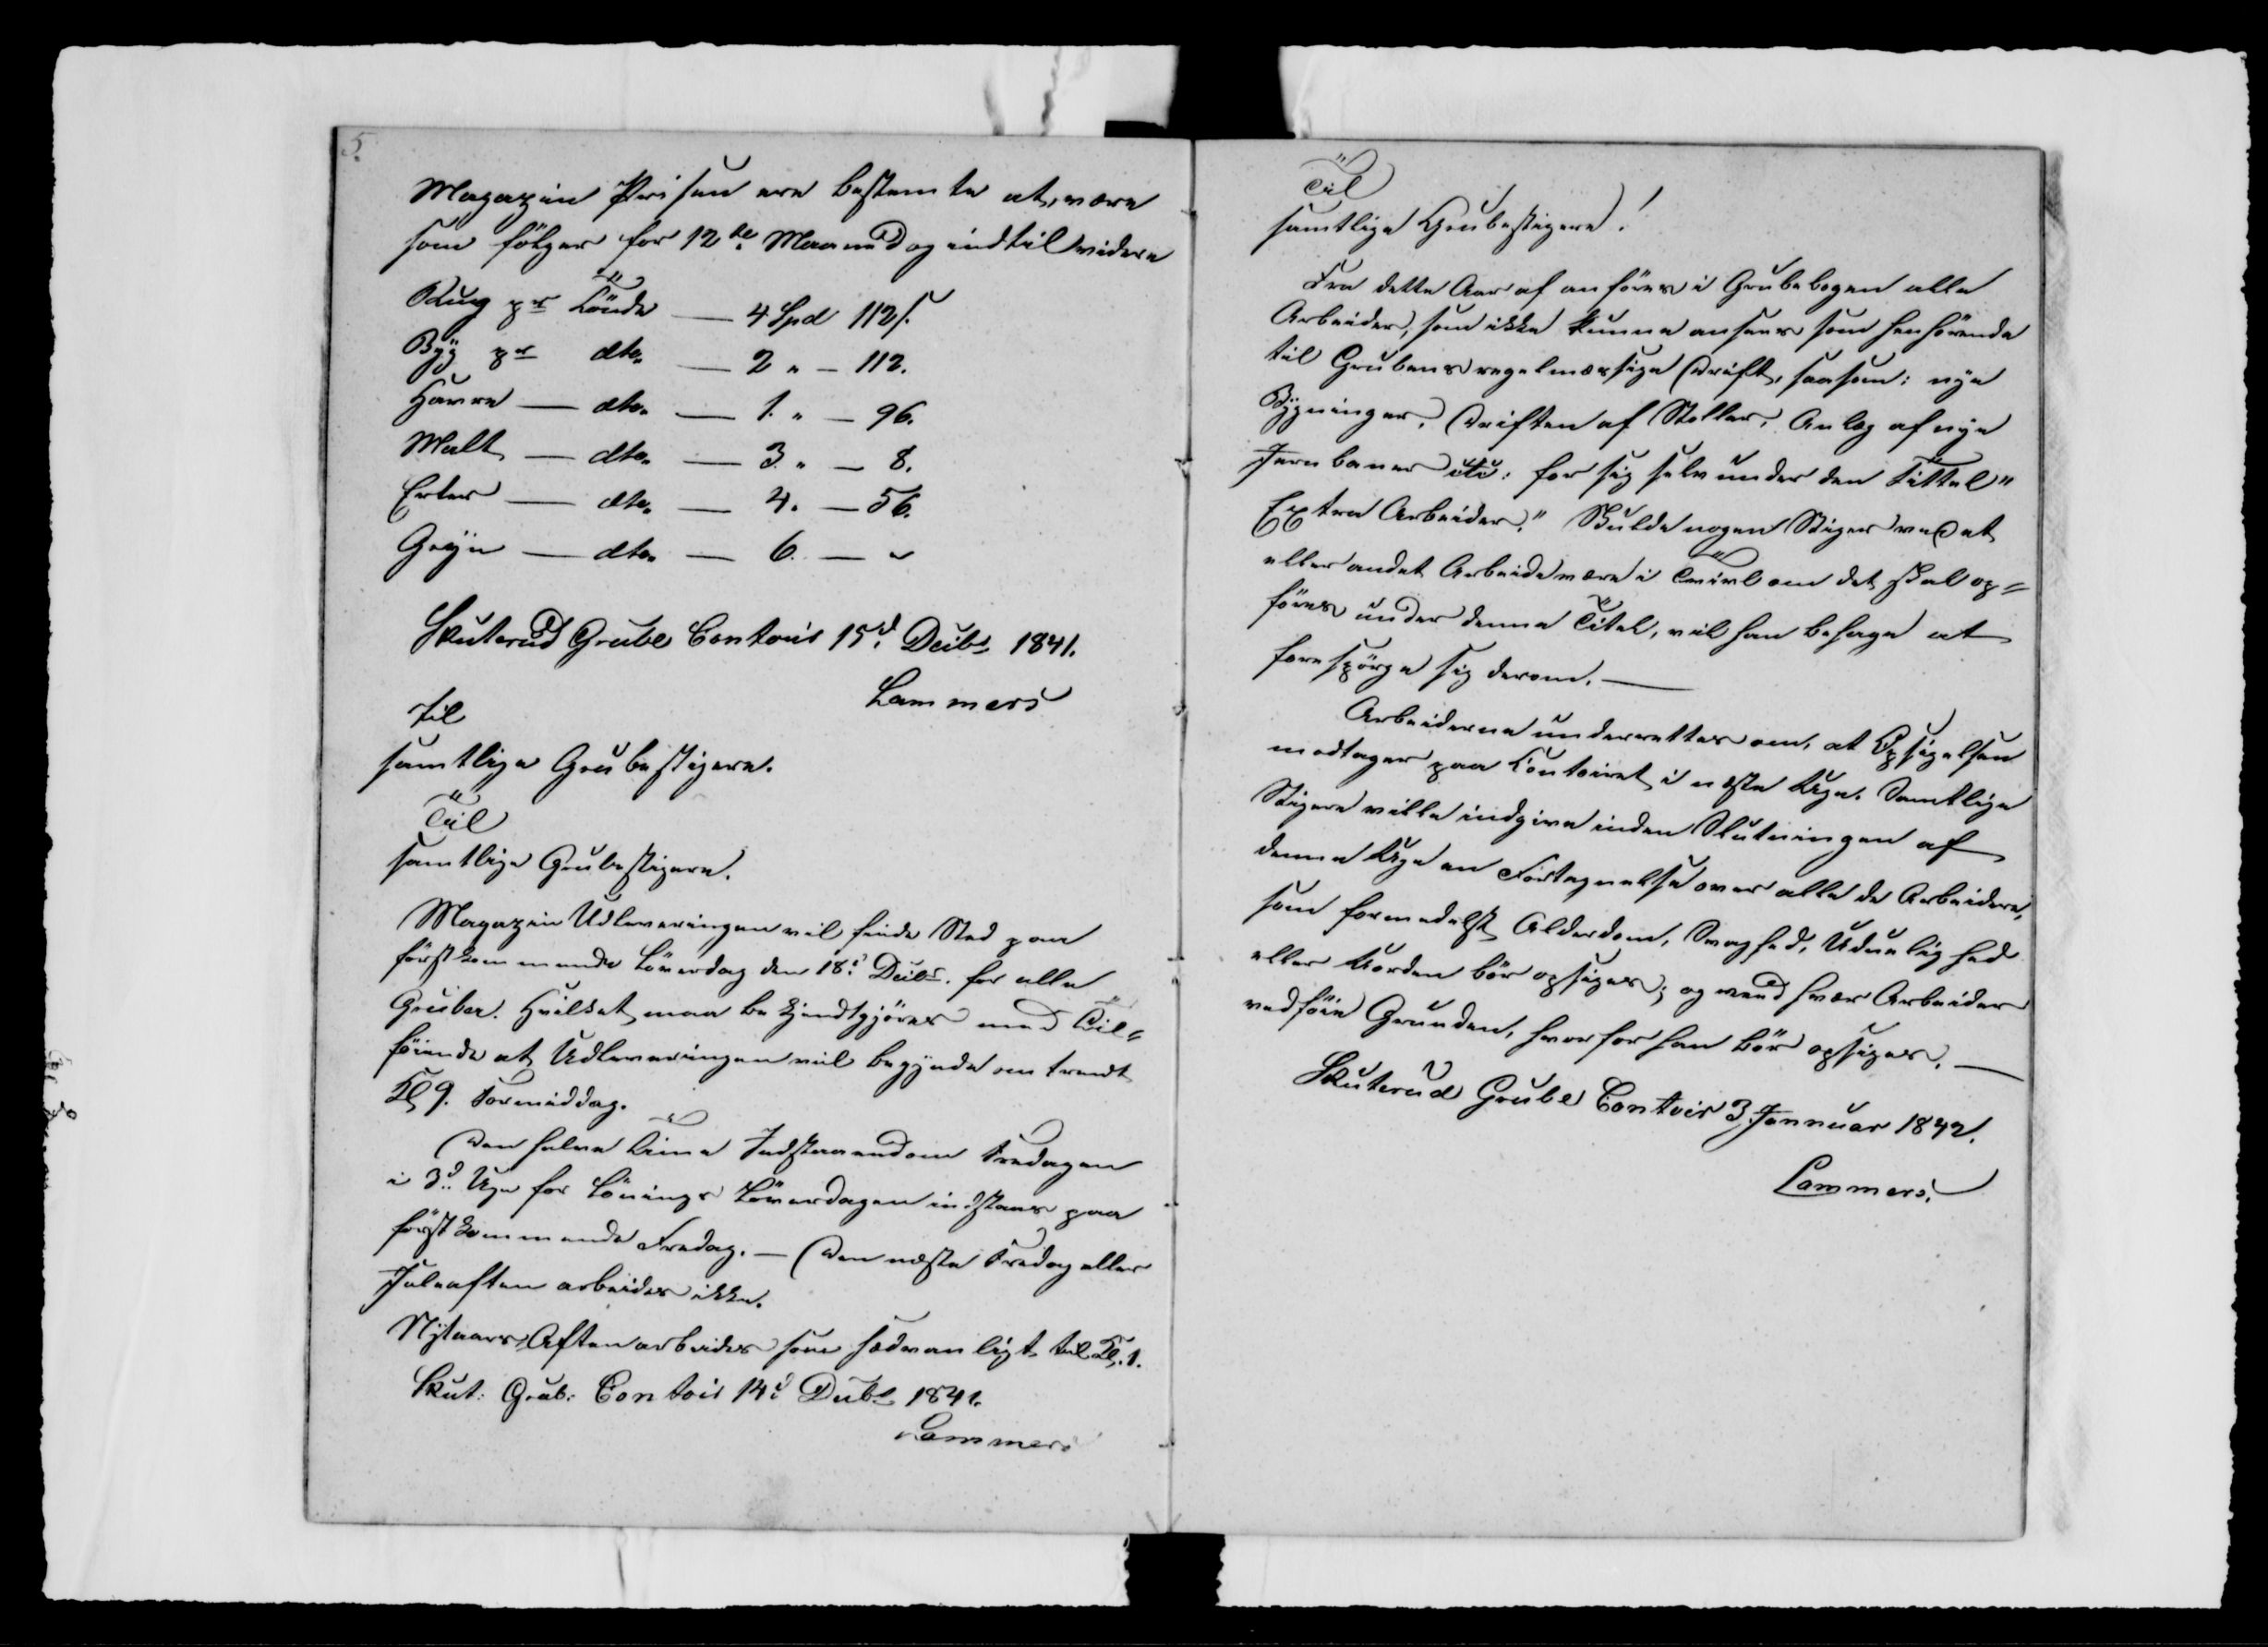 5.
Magazin Prisen ere bestemte at være
som følger for 12te Maaned og indtil videre
Rug pr Tönde — 4 Spd 112 s.
Byg pr dto. — 2 " — 112.
Havre — dto. — 1. " — 96.
Malt — dto. — 3. " — 8.
Erter — dto. — 4. — 56.
Gryn — dto. — 6. — "
Skuterud Grube Contoir 15d. Decbr 1841.
Lammers
Til
samtlige Grubestigere.
Til
samtlige Grubestigere.
Magazin Udleveringen vil finde Sted paa
förstkommende Löverdag den 18d Decbr. for alle
Gruber. Hvilket maa bekjendtgjöres med Til=
föiende at Udleveringen vil begynde omtrendt
Kl 9. Formiddag.
Den halve Time Indstaaendom Fredagen
i 3d. Uge for Lönings Löverdagen indstaaes paa
förstkommende Fredag. — Den næste Fredag eller
Juleaften arbeides ikke.
Nytaars Aften arbeides som sædvanligt til Kl. 1.
Skut: Grub: Contoir 14d Decbr 1841.
Lammers
Til
samtlige Grubestigere!
Fra dette Aar af anföres i Grubebogen alle
Arbeider, som ikke kunne ansees som henhörende
til Grubens regelmæssige Drift, saasom: nye
Bygninger, Driften af Stoller, Anlæg af nye
Jernbaner etc: for sig selv under den Tittel "
Extra Arbeider." Skulde nogen Stiger ved et
eller andet Arbeide være i Tvivl om det skal op=
föres under denne Titel, vil han behage at
forespörge sig derom. —
Arbeiderne underrettes om, at Opsigelsen
modtages paa Contoiret i næste Uge. Samtlige
Stigere ville indgive inden Slutningen af
denne Uge en Fortegnelse over alle de Arbeidere,
som formedelst Alderdom, Svaghed, Uduelighed
eller Uorden bör opsiges; og ved hver Arbeider
vedföie Grunden, hvorfor han bör opsiges. —
Skuterud Grube Contoir 3 Januar 1842.
Lammers.